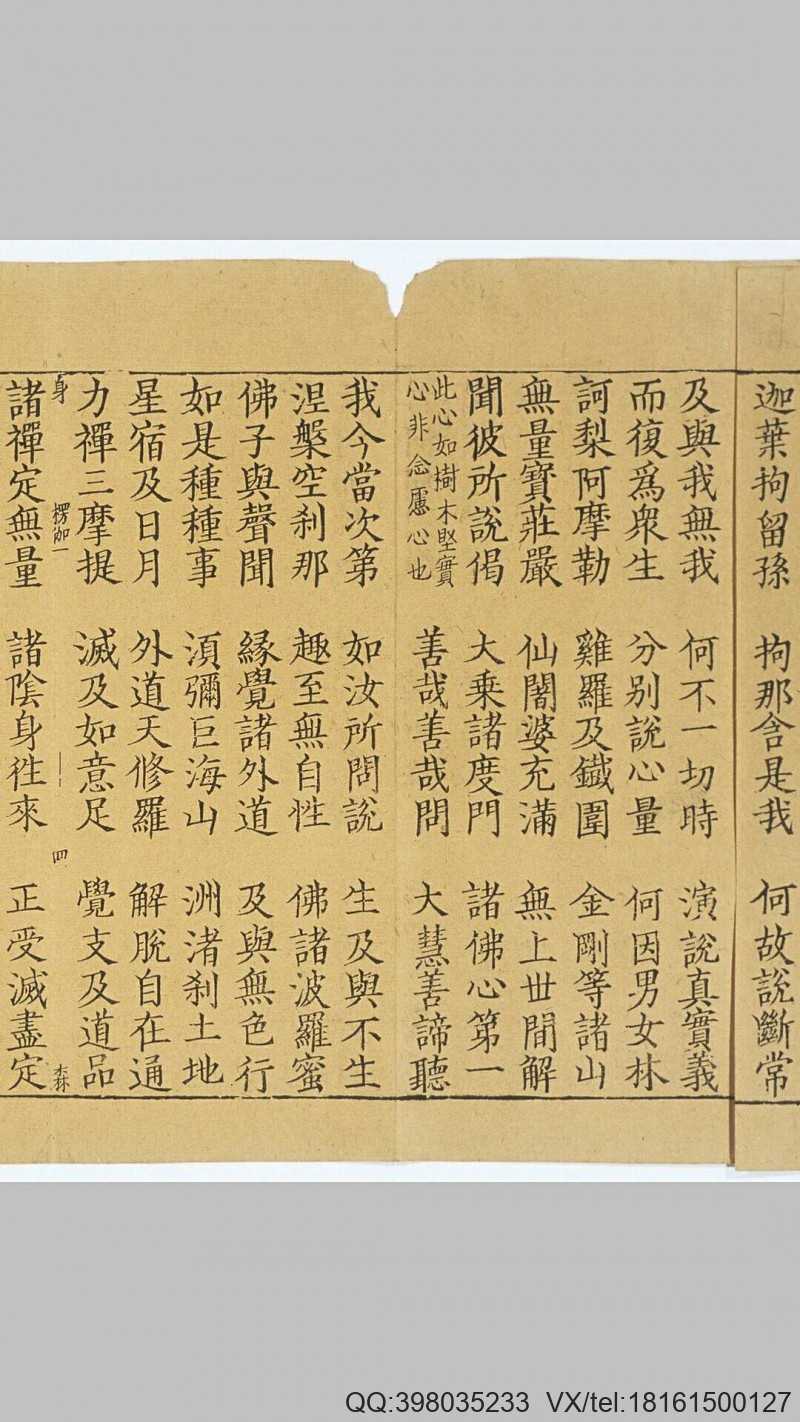 迦葉拘留孫 拘那含是我 何故說斷常
及與我無我 何不一切時 演說真實義
而復為衆生 分別說心量 何因男女林
訶梨阿摩勒 雞羅及鐵圍 金剛等諸山
無量寶莊嚴 仙闥婆充滿 無上世間解
聞彼所說偈 大乘諸度門 諸佛心第一
此心如樹木堅實
心非念慮心也
善哉善哉問 大慧善諦聽
我今當次第 如汝所問說 生及與不生
涅槃空刹那 趣至無自性 佛諸波羅蜜
佛子與聲聞 緣覺諸外道 及與無色行
如是種種事 須彌巨海山 洲渚刹土地
星宿及日月 外道天修羅 解脫自在通
力禪三摩提 滅及如意足 覺支及道品
身 楞伽一 四
諸禪定無量 諸陰身徃來 正受滅盡定
QQ:398035233 VX/tel:18161500127